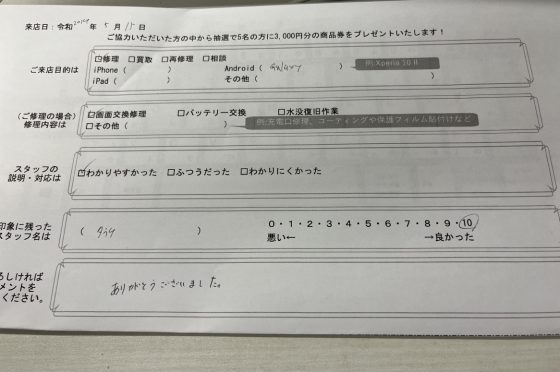 来店日：令和 年 5 月 15 日
ご協力いただいた方の中から抽選で5名の方に3,000円分の商品券をプレゼントいたします！
ご来店目的は
☑修理 □買取 □再修理 □相談
iPhone（ ） Android（ Galaxy ） 例:Xperia 10 Ⅱ
iPad（ ） その他（ ）
（ご修理の場合）
修理内容は
☑画面交換修理 □バッテリー交換 □水没復旧作業
□その他（ ） 例:充電口修理、コーティングや保護フィルム貼付けなど
スタッフの
説明・対応は
☑わかりやすかった □ふつうだった □わかりにくかった
印象に残った
スタッフ名は
（ ）
0・1・2・3・4・5・6・7・8・9・10
悪い← →良かった
ろしければ
メントを
ください。
ありがとうございました。